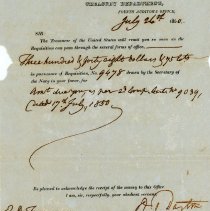 TREASURY DEPARTMENT,
FOURTH AUDITOR'S OFFICE,
July 26th 1850.
SIR:
The Treasurer of the United States will remit you as soon as the
Requisition can pass through the several forms of office
Three hundred & forty eight dollars & 70 cts
in pursuance of Requisition, No. 9478 drawn by the Secretary of
the Navy in your favor, for
Am't due you, as per 2d Comp. cert. No 9039,
dated 17th July, 1850
Be pleased to acknowledge the receipt of the money to this Office
I am, sir, respectfully, your obedient servant,
A. O. Dayton